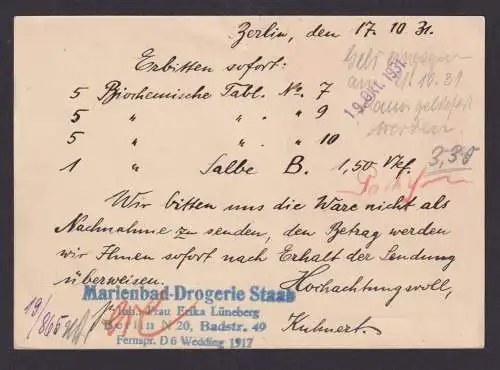 Berlin, den 17. 10 31.
Erbitten sofort:
Geld eingegangen
am 21. 10. 31
kann geliefert
werden.
19. Okt. 1931
5 Biochemische Tabl. No. 7
5 " " " 9
5 " " " 10
1 " Salbe B. 1,50 Vkf.
3,30
Wir bitten uns die Ware nicht als
Nachnahme zu senden, den Betrag werden
wir Ihnen sofort nach Erhalt der Sendung
überweisen.
Hochachtungsvoll,
Kuhnert.
Marienbad-Drogerie Staab
Inh. Frau Erika Lüneberg
Berlin N 20, Badstr. 49
Fernspr. D 6 Wedding 1917
19/
865